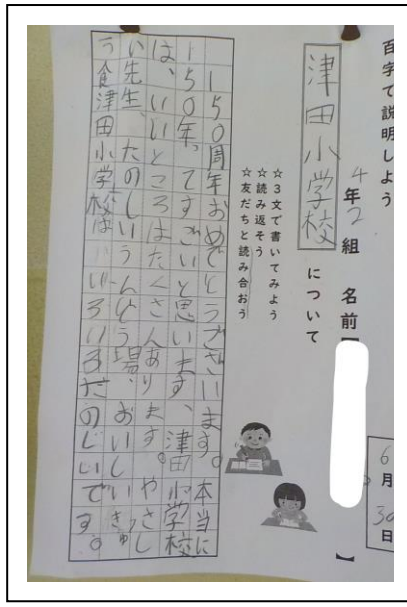 百字で説明しよう
4年2組 名前【 】
6月30日
津田小学校 について
☆3文で書いてみよう
☆読み返そう
☆友だちと読み合おう
150周年おめでとうございます。本当に
150年、てすごいと思います、津田小学校
は、いいところはたくさんあります。やさし
い先生、たのしいうんどう場、おいしいきゅ
う食津田小学校はいろいろたのしいです。